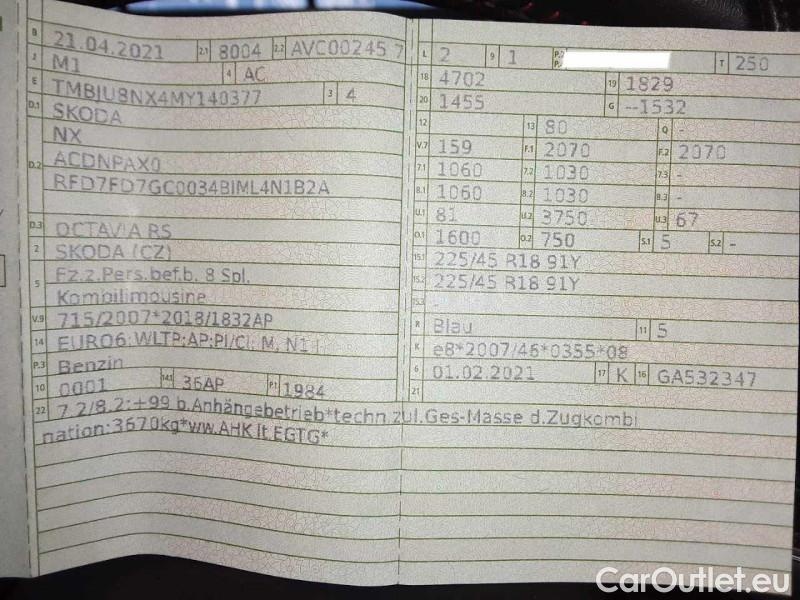 B 21.04.2021 2.1 8004 2.2 AVC00245 7
J M1 4 AC
E TMBJU8NX4MY140377 3 4
D.1 SKODA
NX
D.2 ACDNPAX0
RFD7FD7GC0034BIML4N1B2A
D.3 OCTAVIA RS
2 SKODA (CZ)
5 Fz.z.Pers.bef.b. 8 Spl.
Kombilimousine
V.9 715/2007*2018/1832AP
14 EURO6;WLTP;AP;PI/CI; M, N1 I
P.3 Benzin
10 0001 14.1 36AP P.1 1984
L 2 9 1 P.2 P. T 250
18 4702 19 1829
20 1455 G --1532
12 13 80 Q -
V.7 159 F.1 2070 F.2 2070
7.1 1060 7.2 1030 7.3 -
8.1 1060 8.2 1030 8.3 -
U.1 81 U.2 3750 U.3 67
O.1 1600 O.2 750 S.1 5 S.2 -
15.1 225/45 R18 91Y
15.2 225/45 R18 91Y
15.3 -
R Blau 11 5
K e8*2007/46*0355*08
6 01.02.2021 17 K 16 GA532347
21
22 7.2/8.2:+99 b.Anhängebetrieb*techn.zul.Ges-Masse d.Zugkombi
nation:3670kg*ww.AHK lt.EGTG*
CarOutlet.eu